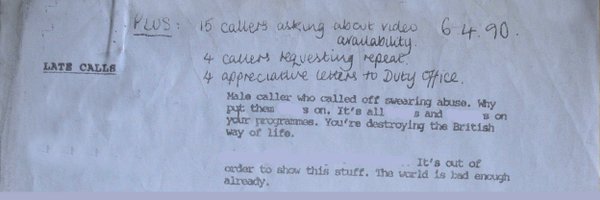 PLUS: 15 callers asking about video 6.4.90.
availability.
4 callers requesting repeat.
LATE CALLS
4 appreciative letters to Duty Office.
Male caller who called off swearing abuse. Why
put them s on. It's all s and s on
your programmes. You're destroying the British
way of life.
It's out of
order to show this stuff. The world is bad enough
already.